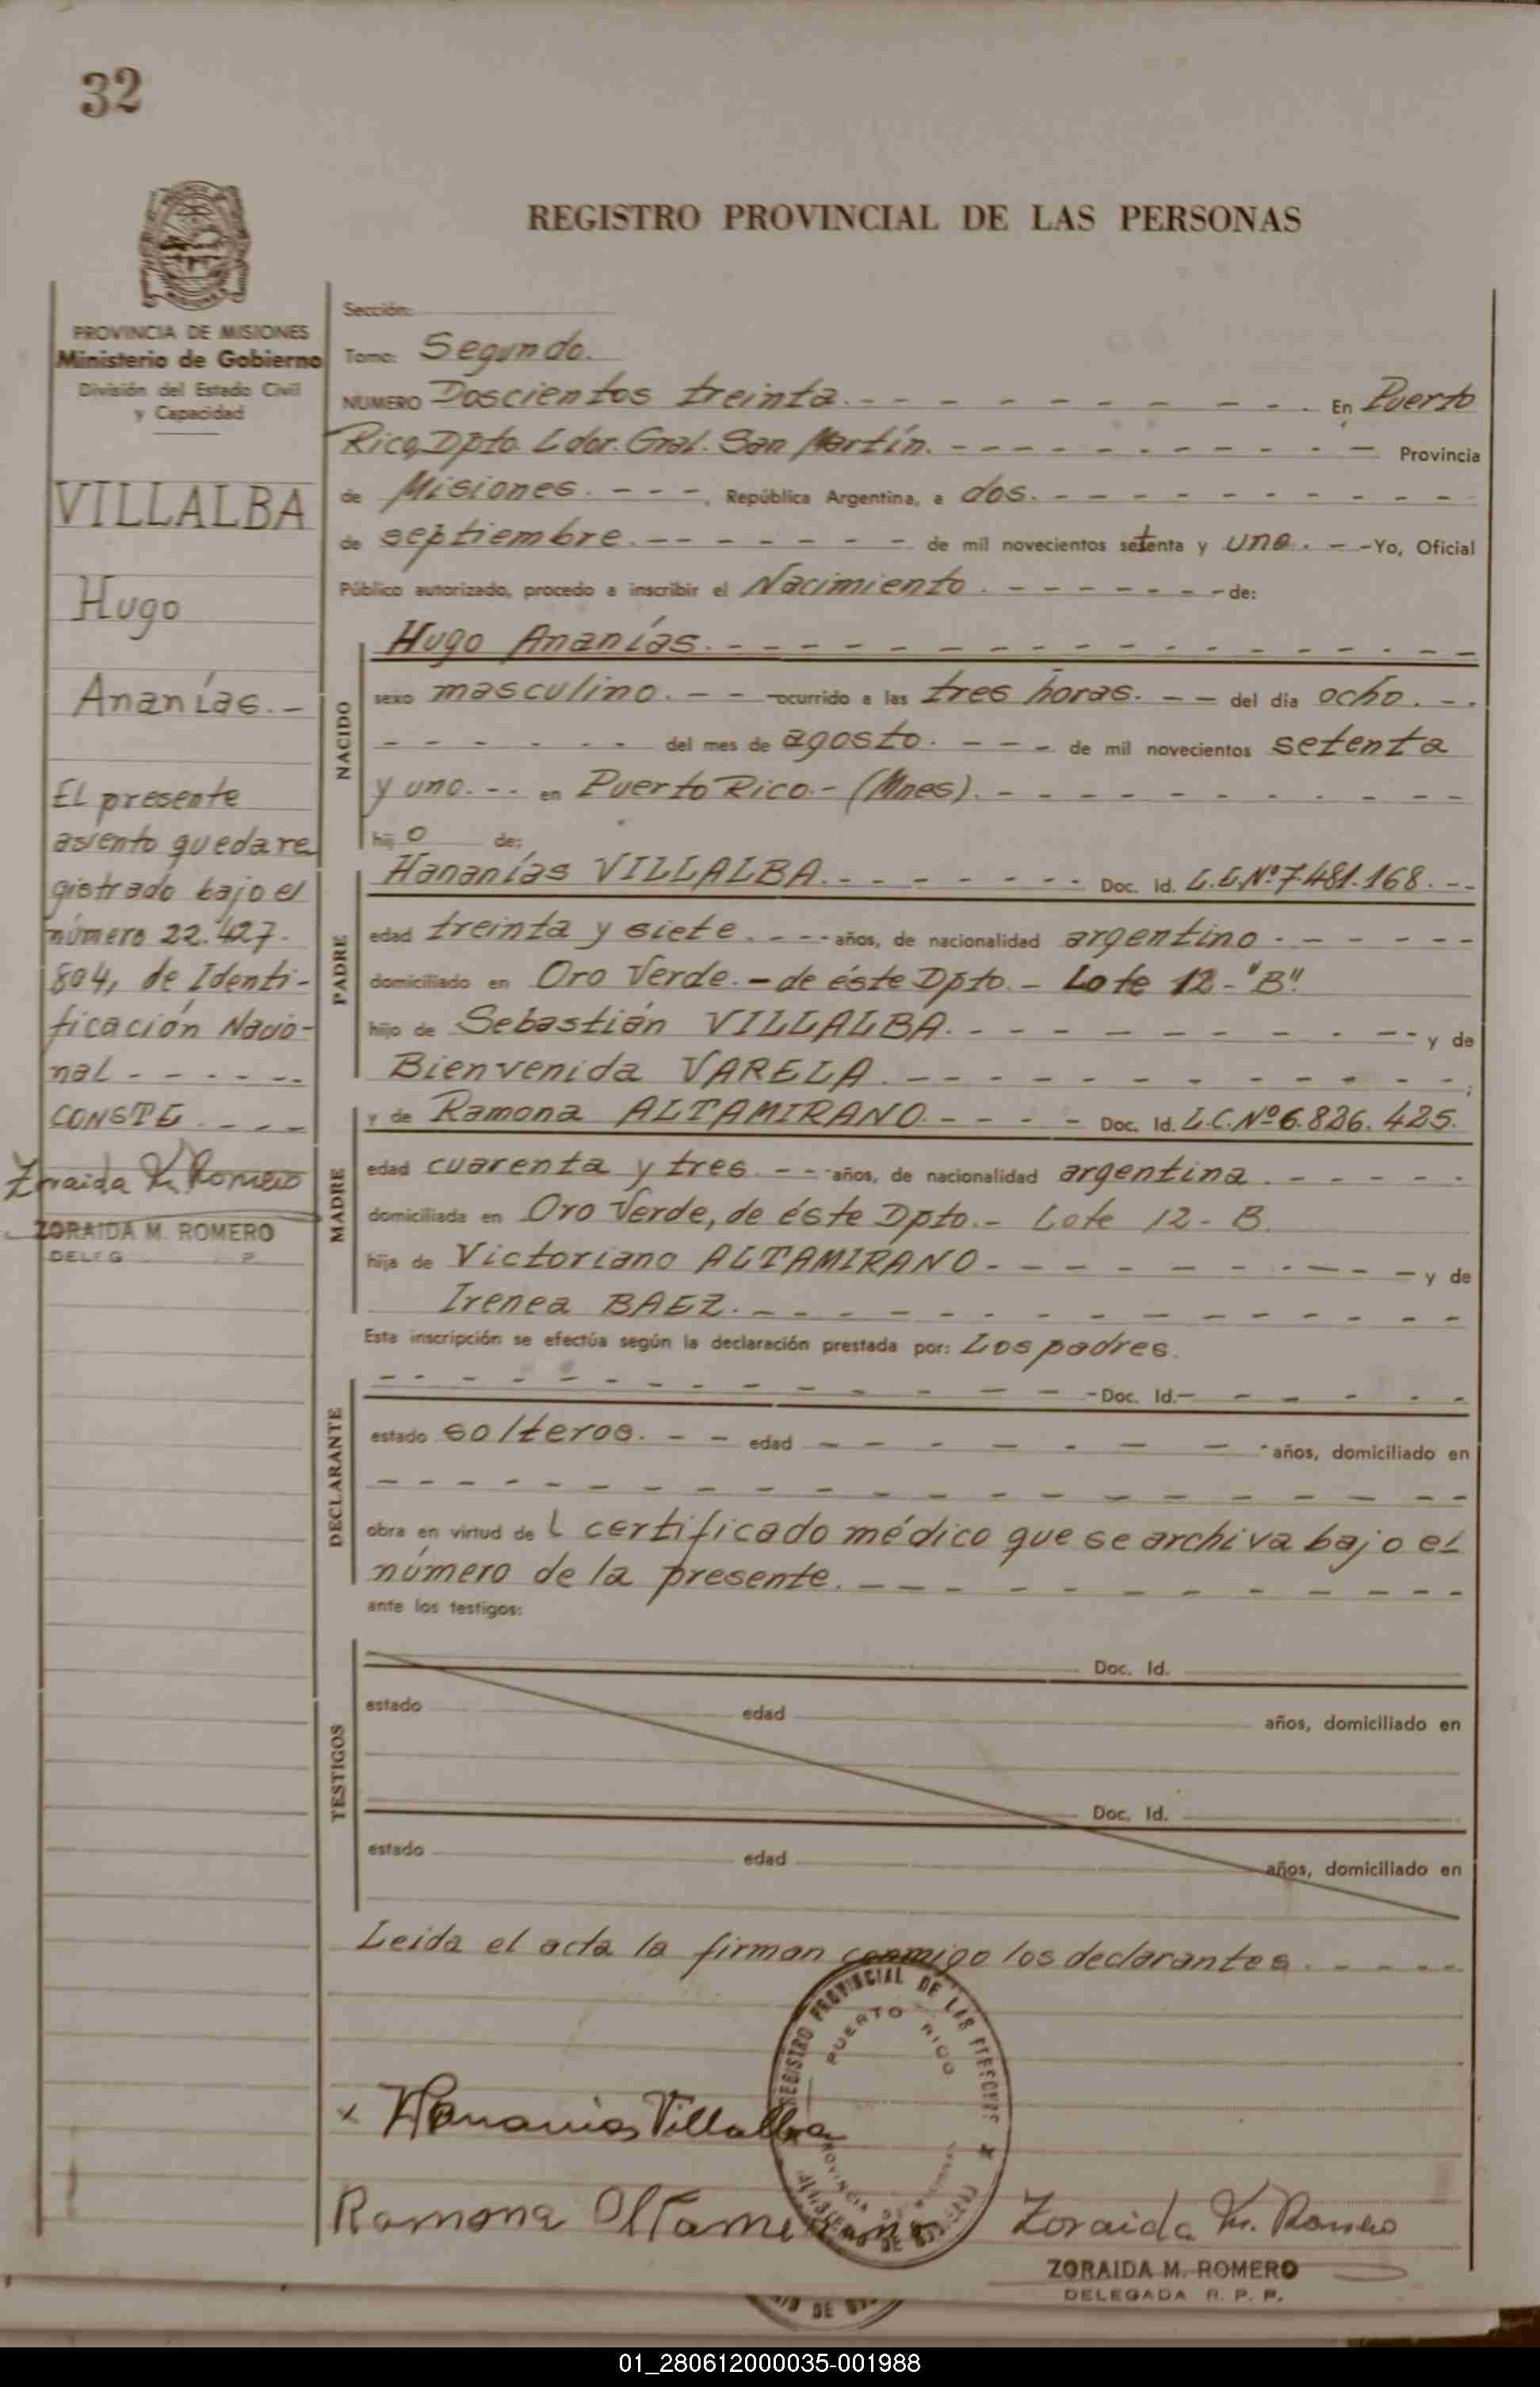 32
REGISTRO PROVINCIAL DE LAS PERSONAS
PROVINCIA DE MISIONES
Ministerio de Gobierno
División del Estado Civil
y Capacidad
VILLALBA
Hugo
Ananías.-
El presente
asiento queda re
gistrado bajo el
número 22.427.
804, de Identi-
ficación Nacio-
nal - - - - - -
CONSTE. - - -
Zoraida M. Romero
ZORAIDA M. ROMERO
Sección:
Tomo: Segundo.
NUMERO Doscientos treinta. - - - - - - - - - - En Puerto
Rico, Dpto. Ldor. Gral. San Martín. - - - - - - - - - - Provincia
de Misiones. - - -, República Argentina, a dos. - - - - - - - - - -
de septiembre. - - - - - - - de mil novecientos setenta y uno. - - Yo, Oficial
Público autorizado, procedo a inscribir el Nacimiento. - - - - - - - de:
NACIDO
Hugo Ananías. - - - - - - - - - - - - - - - -
sexo masculino. - - - ocurrido a las tres horas. - - del día ocho. - -
- - - - - - - del mes de agosto. - - - de mil novecientos setenta
y uno. - - en Puerto Rico.- (Mnes). - - - - - - - - - -
hij o de:
PADRE
Hananías VILLALBA. - - - - - - - Doc. Id. L.E.Nº.7.481.168. - -
edad treinta y siete. - - - años, de nacionalidad argentino. - - - - -
domiciliado en Oro Verde. - de éste Dpto. - Lote 12 - "B".
hijo de Sebastián VILLALBA. - - - - - - - - - - y de
Bienvenida VARELA. - - - - - - - - - - - - ;
MADRE
y de Ramona ALTAMIRANO. - - - - Doc. Id. L.C.Nº6.826.425.
edad cuarenta y tres. - - - años, de nacionalidad argentina. - - - - -
domiciliada en Oro Verde, de éste Dpto. - Lote 12 - B.
hija de Victoriano ALTAMIRANO - - - - - - - - - y de
Irenea BAEZ. - - - - - - - - - - - - - -
Esta inscripción se efectúa según la declaración prestada por: Los padres.
DECLARANTE
- - - - - - - - - - - - - Doc. Id. - - - - - -
estado solteros. - - edad - - - - - - - - años, domiciliado en
- - - - - - - - - - - - - - - - - - - -
obra en virtud de l certificado médico que se archiva bajo el
número de la presente. - - - - - - - - - - - -
ante los testigos:
TESTIGOS
Doc. Id.
estado edad años, domiciliado en
Doc. Id.
estado edad años, domiciliado en
Leida el acta la firman conmigo los declarantes. - - - -
REGISTRO PROVINCIAL DE LAS PERSONAS
PUERTO RICO
x Hananias Villalba
Ramona Altamirano
Zoraida M. Romero
ZORAIDA M. ROMERO
DELEGADA R. P. P.
01_280612000035-001988